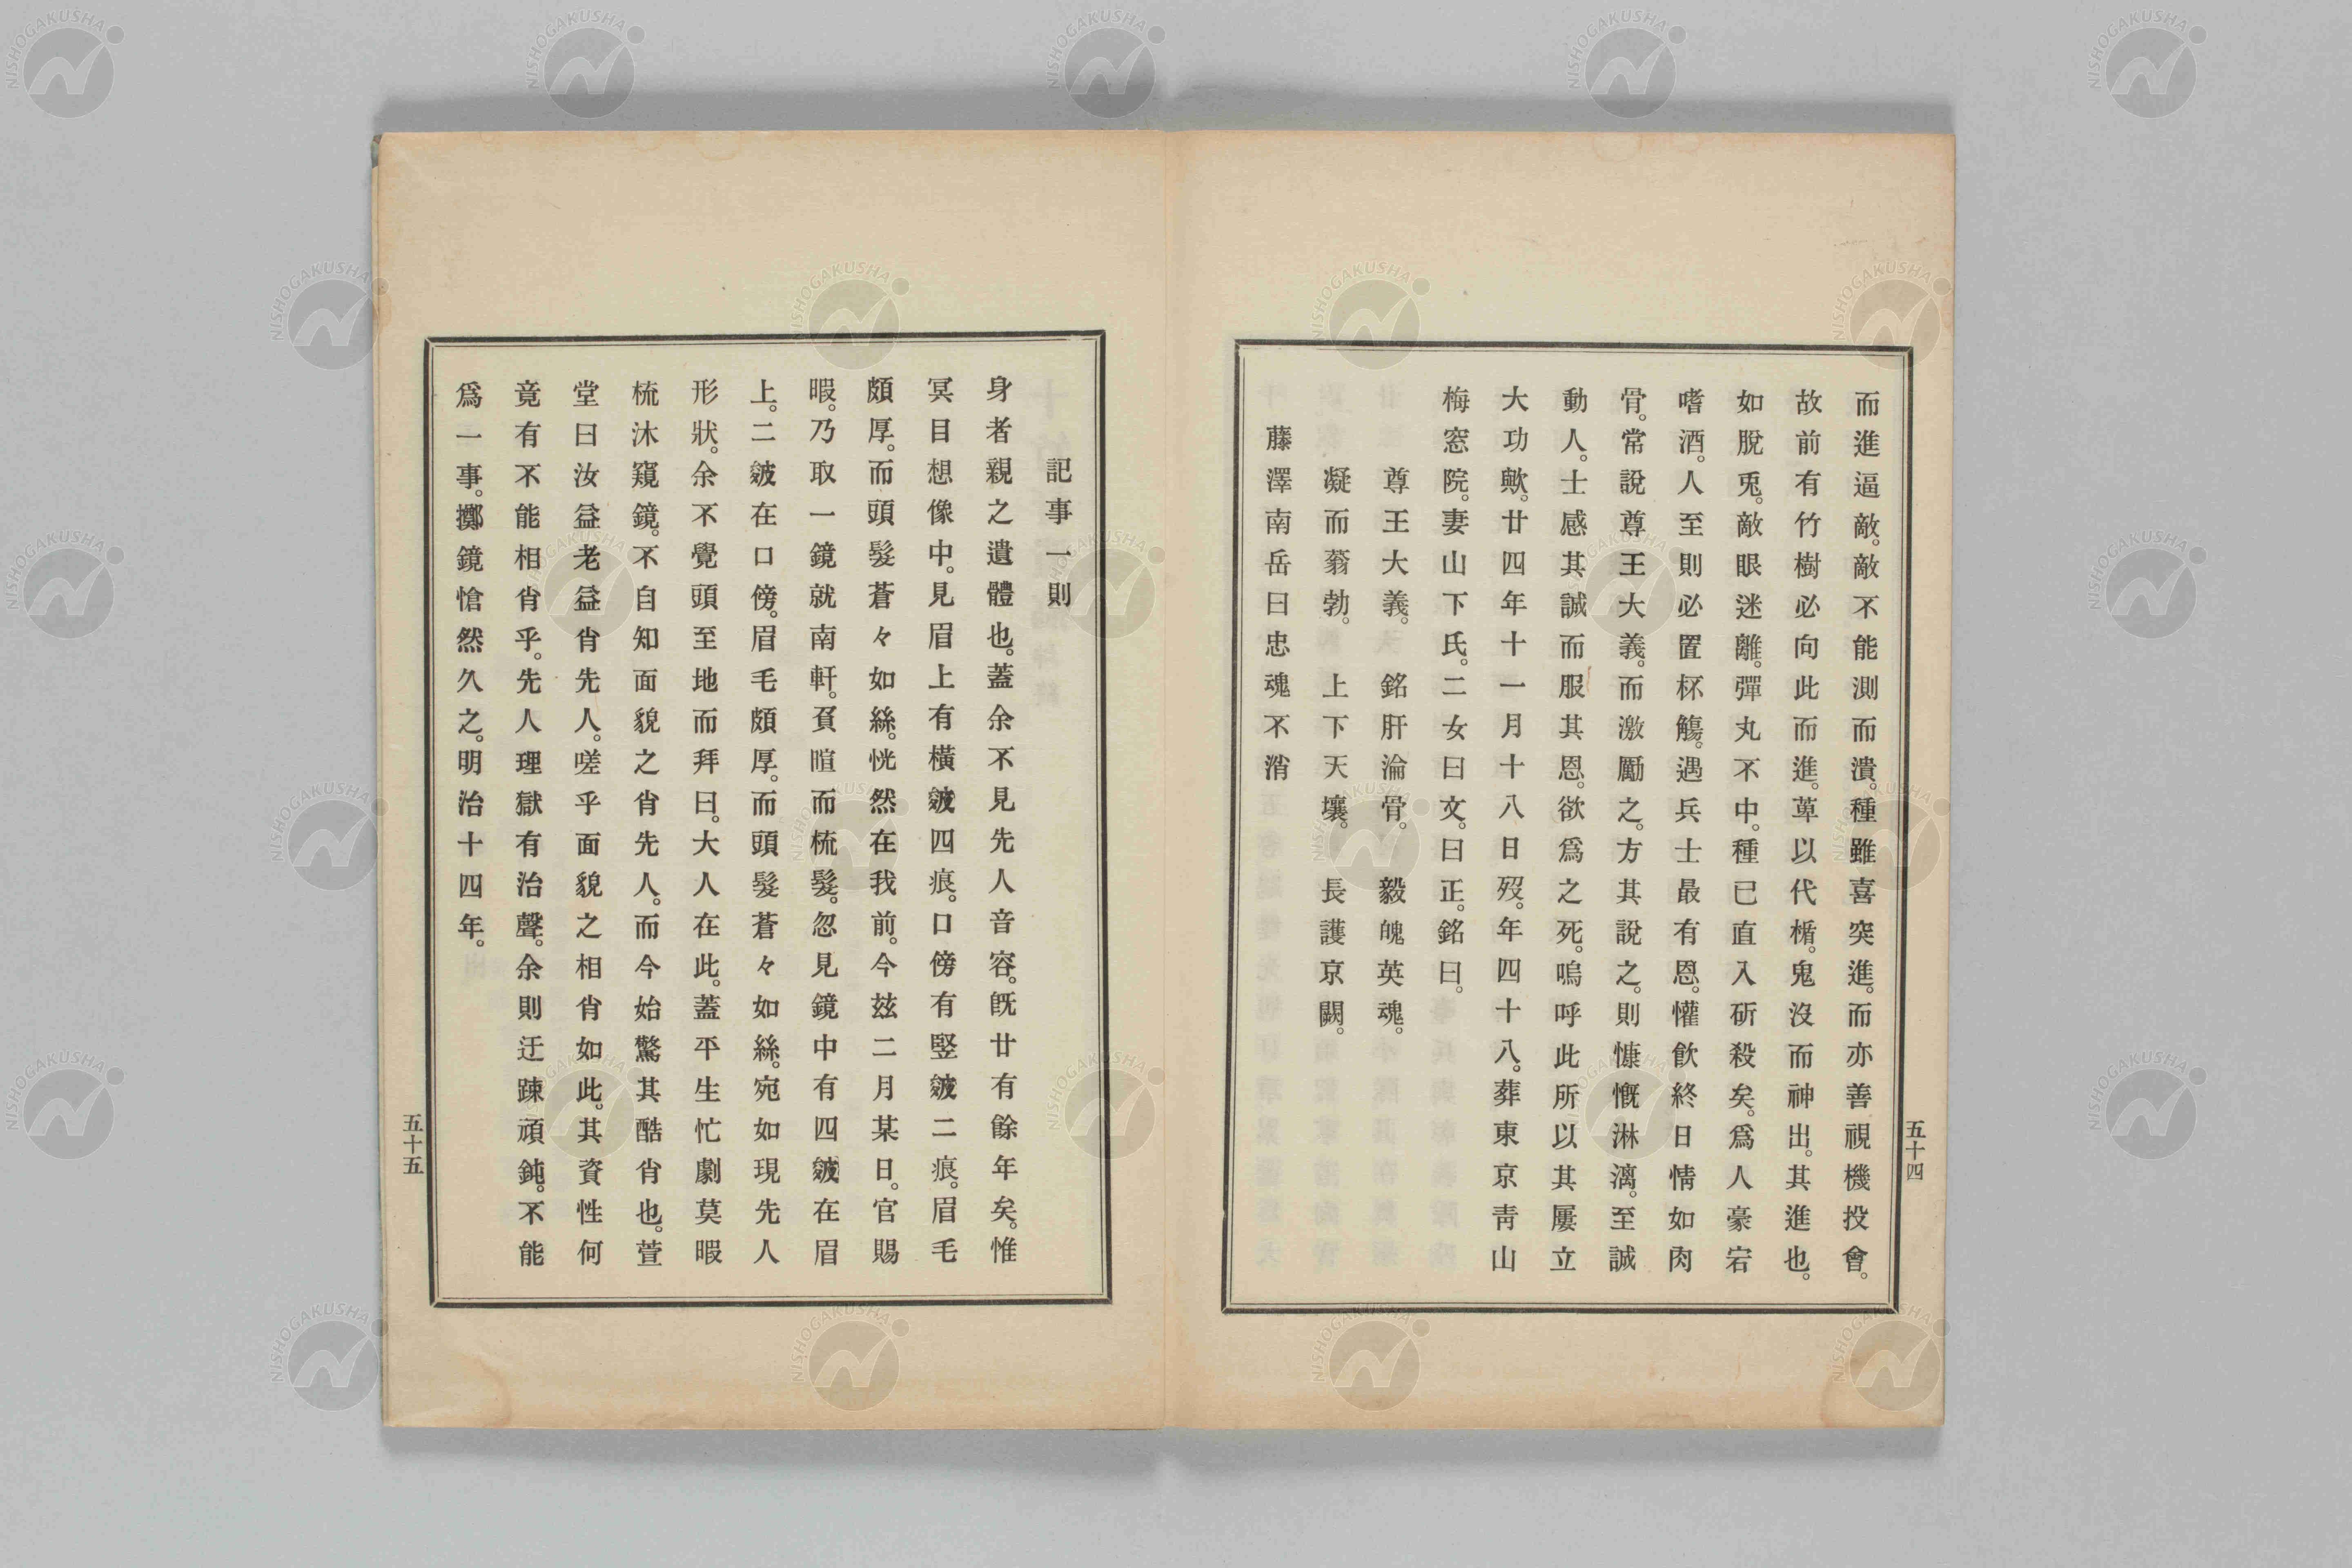 而進逼敵。敵不能測而潰。種雖喜突進。而亦善視機投會。
故前有竹樹必向此而進。草以代楯。鬼沒而神出。其進也。
如脫兎。敵眼迷離。彈丸不中。種已直入斫殺矣。爲人豪宕
嗜酒。人至則必置杯觴。遇兵士最有恩。懽飮終日情如肉
骨。常說尊王大義。而激勵之。方其說之。則慷慨淋漓。至誠
動人。士感其誠而服其恩。欲爲之死。嗚呼此所以其屢立
大功歟。廿四年十一月十八日歿。年四十八。葬東京靑山
梅窓院。妻山下氏。二女曰文。曰正。銘曰。
尊王大義。 銘肝淪骨。 毅魄英魂。
凝而蓊勃。 上下天壤。 長護京闕。
藤澤南岳曰忠魂不消
五十四
記事一則
身者親之遺體也。蓋余不見先人音容。旣廿有餘年矣。惟
冥目想像中。見眉上有橫皴四痕。口傍有竪皴二痕。眉毛
頗厚。而頭髮蒼々如絲。恍然在我前。今玆二月某日。官賜
暇。乃取一鏡就南軒。負暄而梳髮。忽見鏡中有四皴在眉
上。二皴在口傍。眉毛頗厚。而頭髮蒼々如絲。宛如現先人
形狀。余不覺頭至地而拜曰。大人在此。蓋平生忙劇莫暇
梳沐窺鏡。不自知面貌之肖先人。而今始驚其酷肖也。萱
堂曰汝益老益肖先人。嗟乎面貌之相肖如此。其資性何
竟有不能相肖乎。先人理獄有治聲。余則迂踈頑鈍。不能
爲一事。擲鏡愴然久之。明治十四年。
五十五
NISHOGAKUSHA